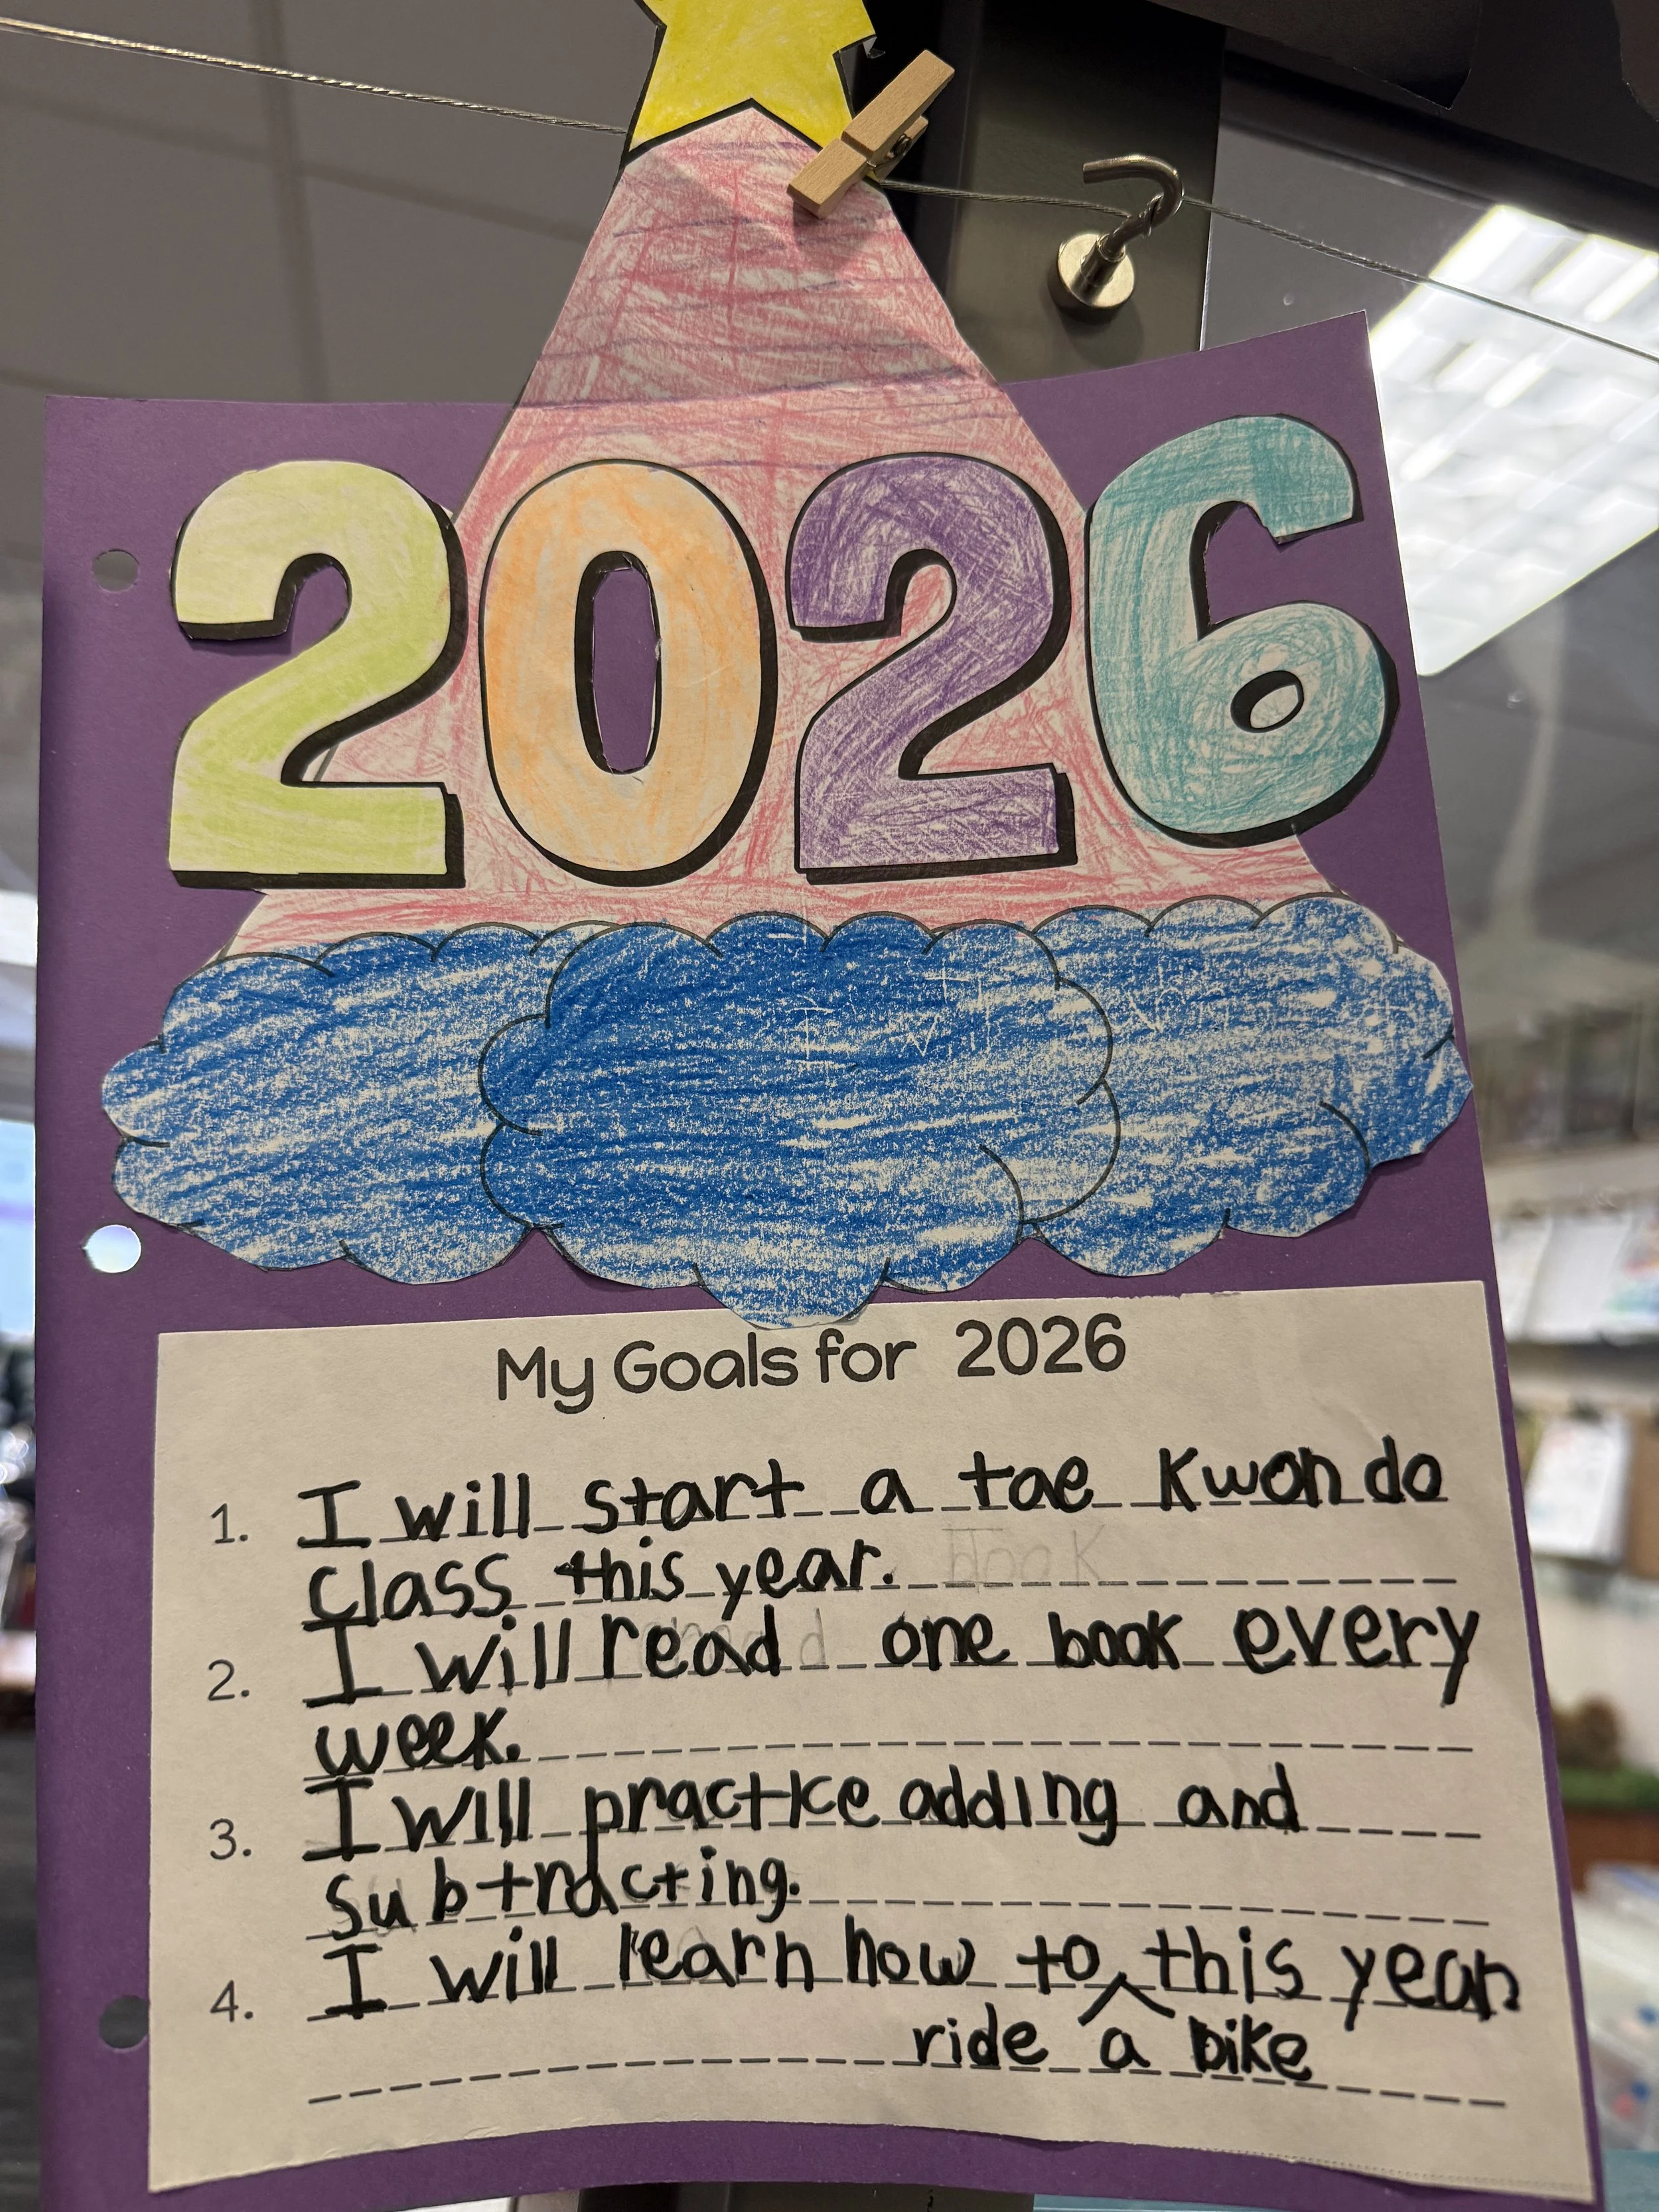 2026
My Goals for 2026
1. I will start a tae kwon do
class this year.
2. I will read one book every
week.
3. I will practice adding and
subtracting.
4. I will learn how to ^ this year
ride a bike